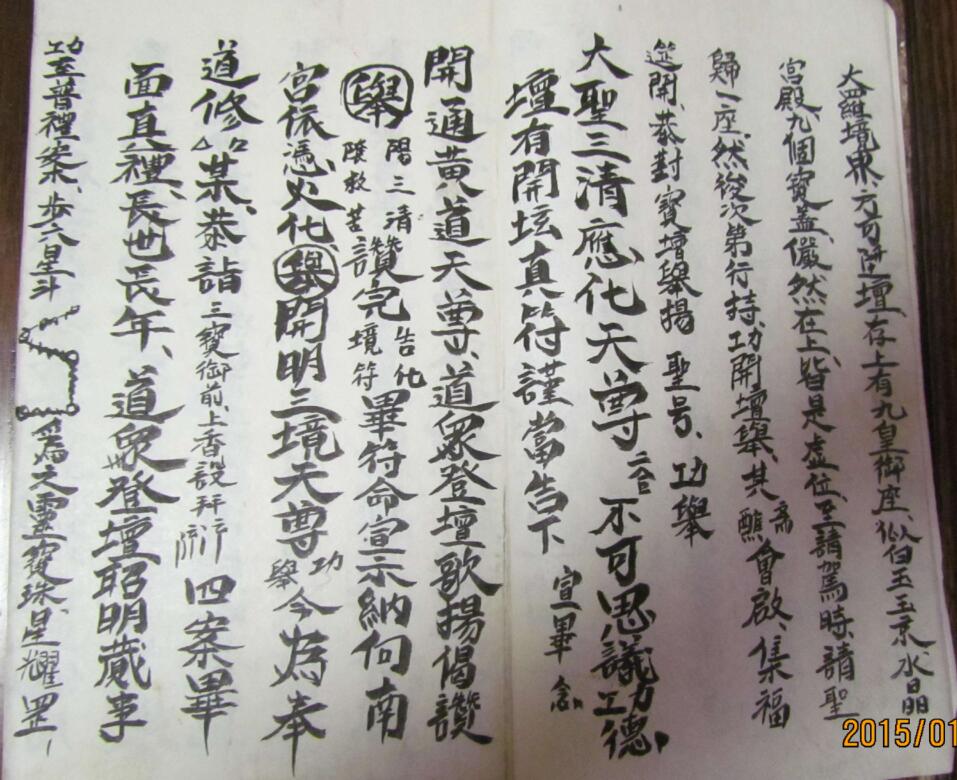 大羅境界、六方陞壇、存上有九皇御座、似白玉玉京、水日晶
宮殿、九個寶蓋、儼然在上、皆是虛位、至請駕時、請聖
歸一座、然後次第行持、功開壇舉、其齋醮會啟、集福
筵開、恭對寶壇舉揚 聖号、功舉
大聖三清應化天尊 二合 不可思議功德、
壇有開坛真符謹當告下 宣畢 念
開通黃道天尊、道眾登壇歌揚偈讚
舉 陽三清 陰救苦 讚完 告化境符 畢符命宣示納向南
宮依憑火化 舉 開明三境天尊 功舉 今為奉
道修 某、恭詣 三寶御前上香設拜 行 四案畢
面真禮、長世長年、道眾登壇昭明蕆事
功至普禮案、步六星斗 為文靈寶珠星耀罡
2015/01